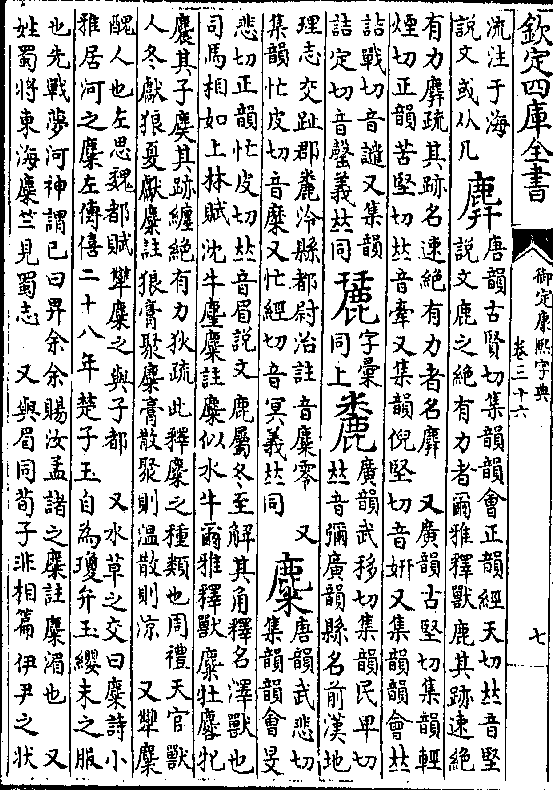 欽定四庫全書
御定康熙字典
卷三十六
七
流注于海
説文或从几
麉
唐韻古賢切集韻韻會正韻經天切𠀤音堅
説文鹿之絶有力者爾雅釋獸鹿其跡速絶
有力麉疏其跡名速絶有力者名麉 又廣韻古堅切集韻輕
煙切正韻苦堅切𠀤音牽又集韻倪堅切音姸又集韻韻會𠀤
詁戰切音譴又集韻
詰定切音罄義𠀤同
字彙
同上
麊
廣韻武移切集韻民卑切
𠀤音彌廣韻縣名前漢地
理志交趾郡麊泠縣都尉治註音麋零 又
集韻忙皮切音糜又忙經切音冥義𠀤同
麋
唐韻武悲切
集韻韻會旻
悲切正韻忙皮切𠀤音眉説文鹿屬冬至解其角釋名澤獸也
司馬相如上林賦沈牛麈麋註麋似水牛爾雅釋獸麋牡麔牝
麎其子䴠其跡躔絶有力狄疏此釋麋之種類也周禮天官獸
人冬獻狼夏獻麋註狼膏聚麋膏散聚則温散則涼 又犂麋
醜人也左思魏都賦犂麋之與子都 又水草之交曰麋詩小
雅居河之麋左傳僖二十八年楚子玉自為瓊弁玉纓未之服
也先戰夢河神謂已曰畀余余賜汝孟諸之麋註麋湄也 又
姓蜀將東海麋竺見蜀志 又與眉同荀子非相篇伊尹之狀